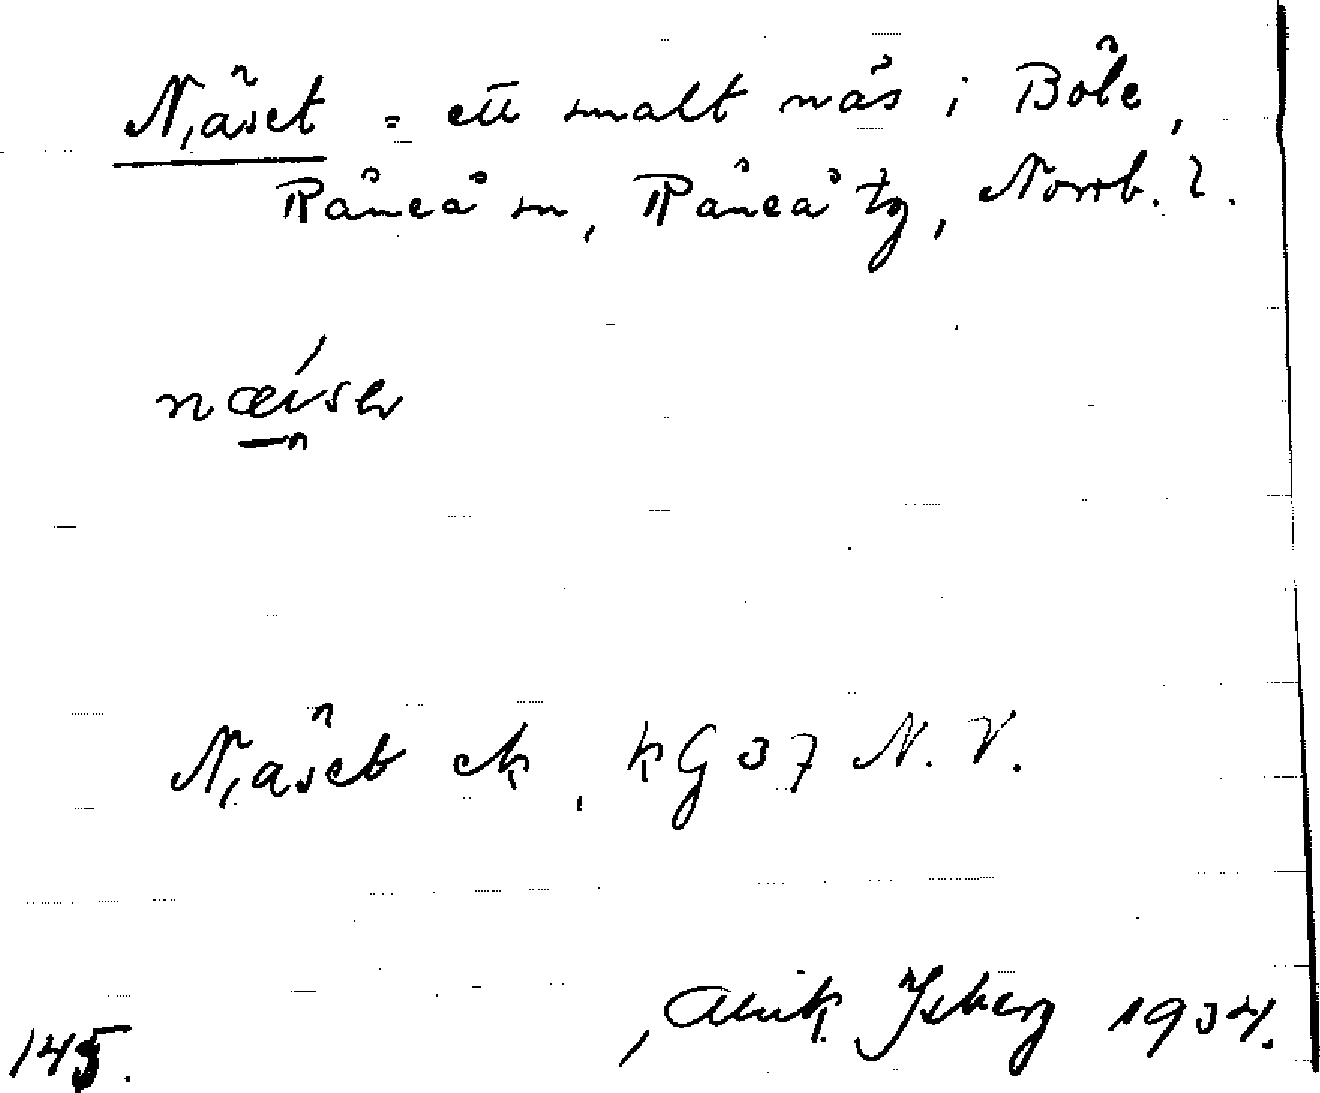 Näset = ett smalt näs i Böle,
Råneå sn, Råneå tg, Norrb. l.
Näset ek, kG 37 N. V.
Alrik Isberg 1934.
145.